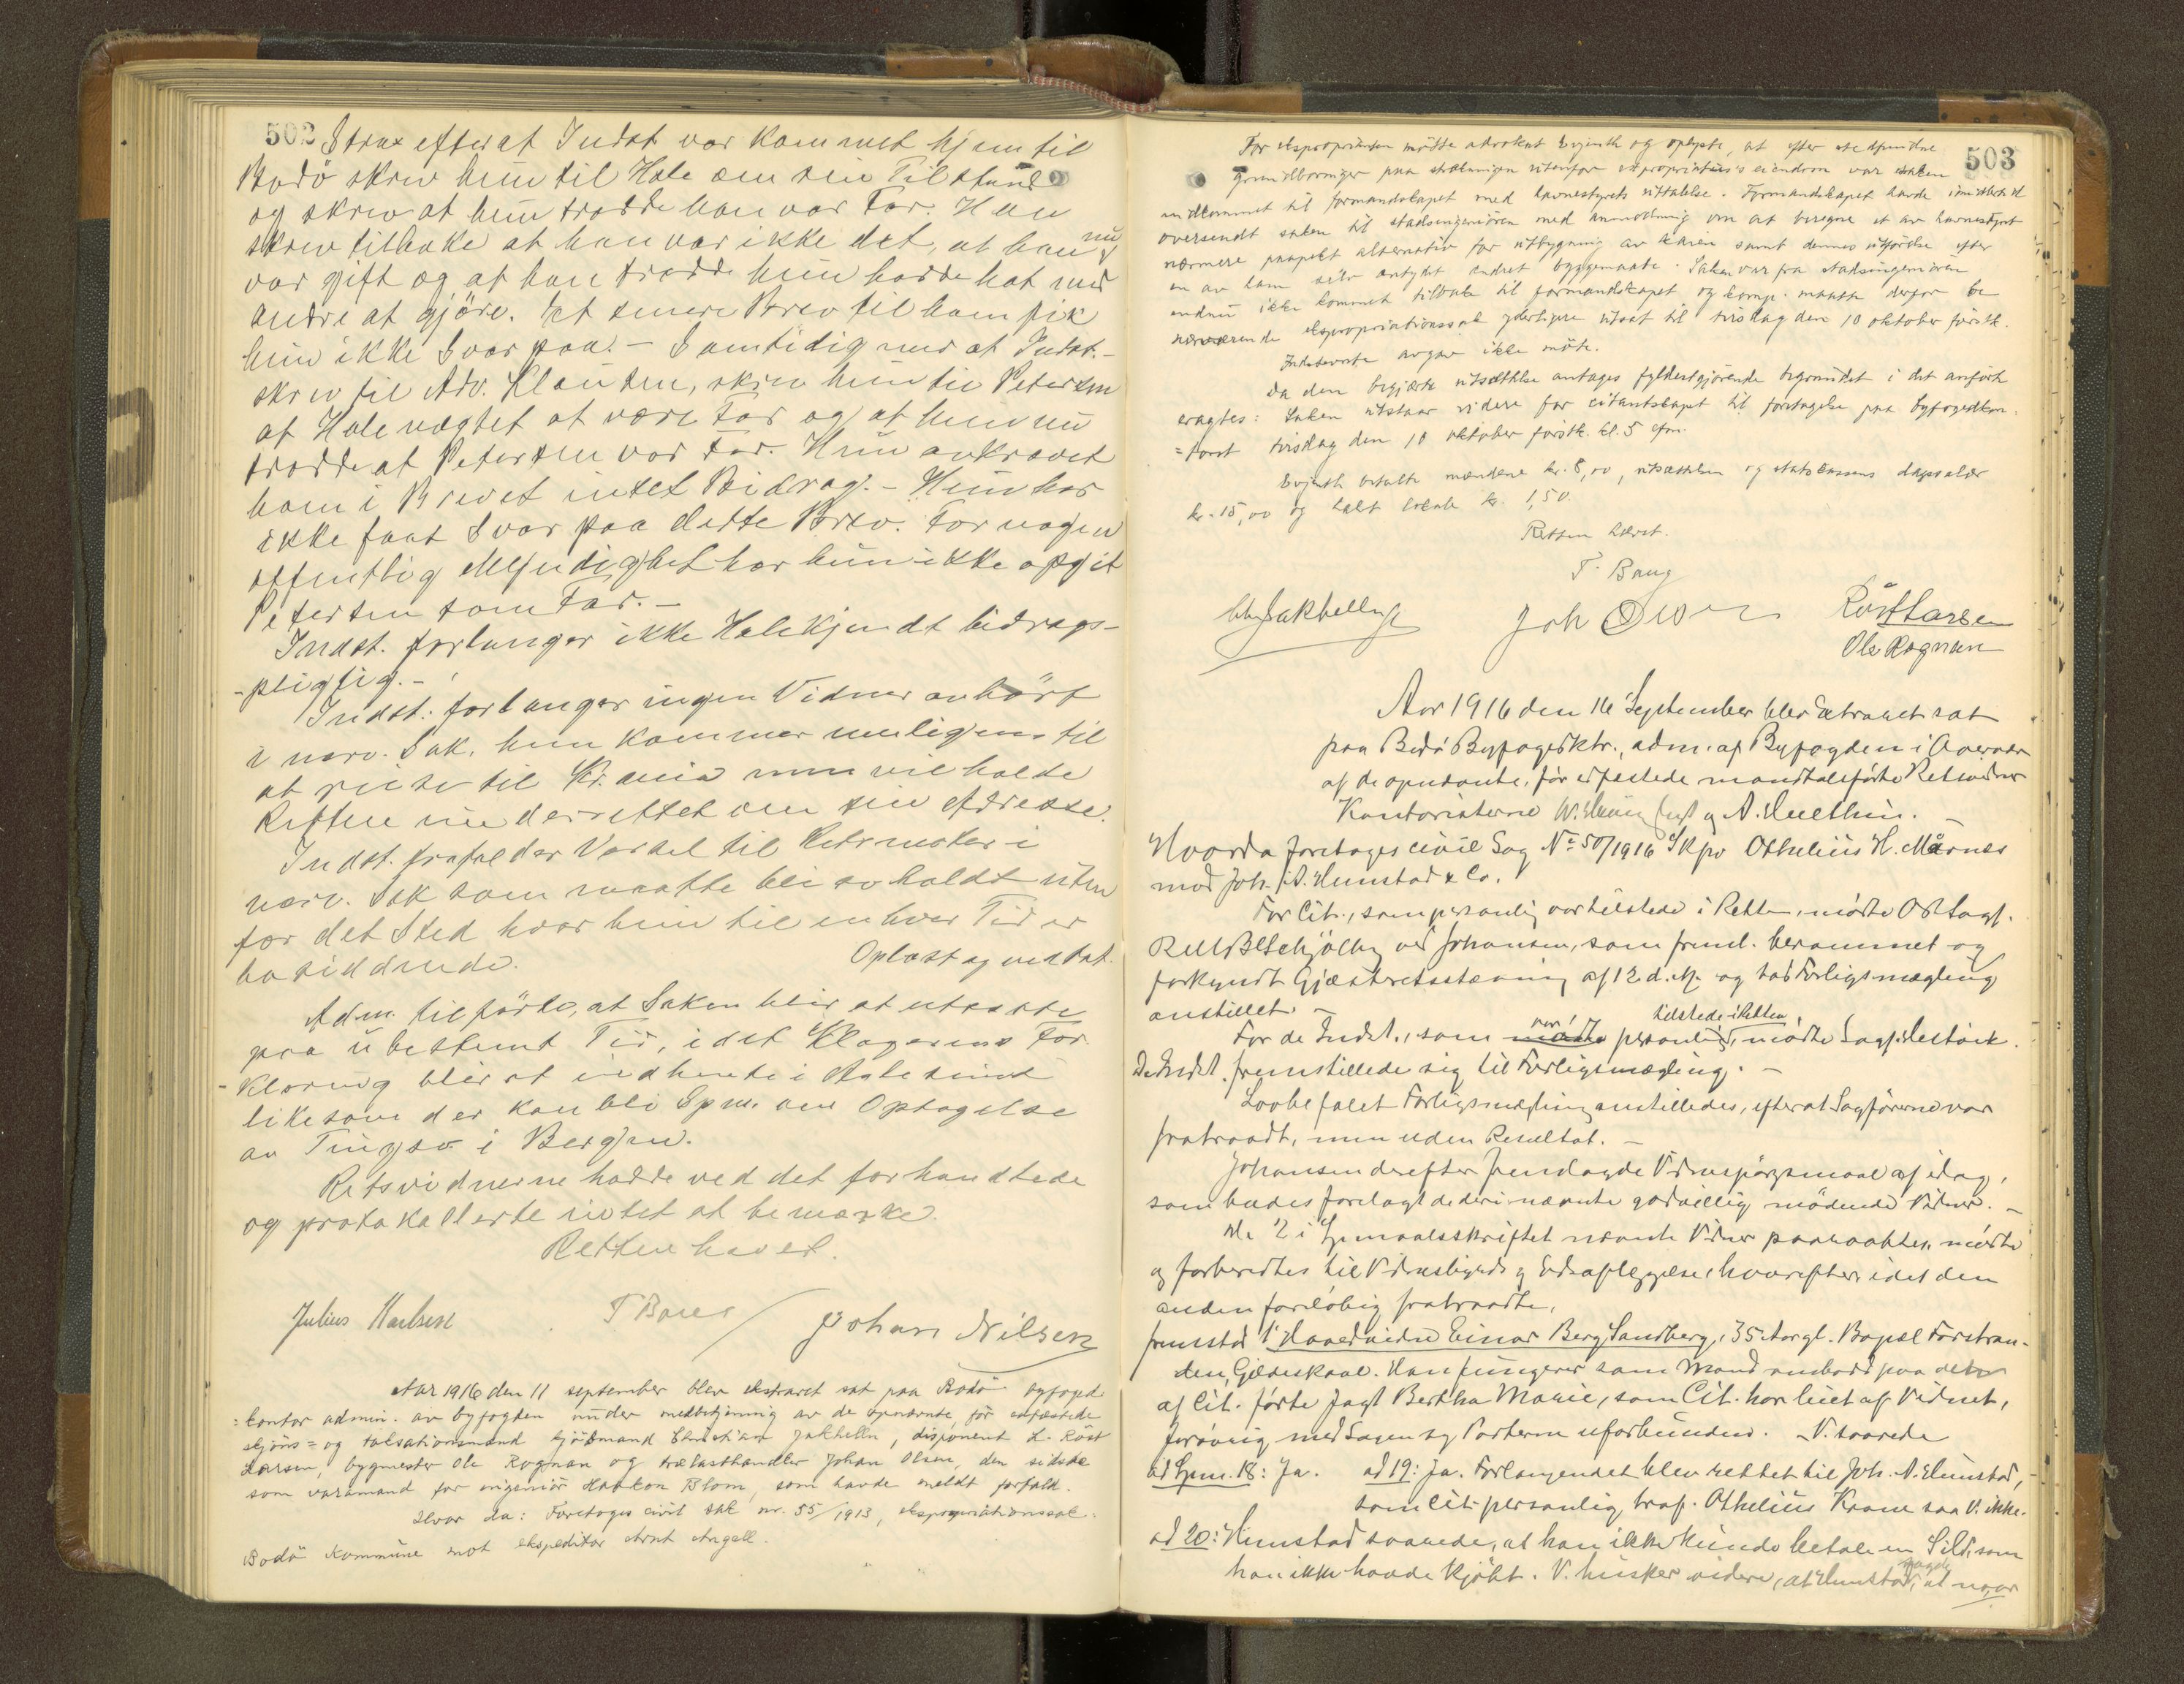 502
Strax efterat Indst. var kommet hjem til
Bodö skrev hun til Hole om sin Tilstand
og skrev at hun trodde han var Far. Han
skrev tilbake at han var ikke det, at han nu
var gift og at han trodde hun hadde hat med
andre at gjöre. Et senere Brev til ham fik
hun ikke Svar paa. - Samtidig med at Indst. -
skrev til Adv. Klausen, skrev hun til Petersen
at Hole nægtet at være Far og at hun nu
trodde at Petersen var Far. Hun avkrævet
ham i Brevet intet Bidrag. - Hun har
ikke faat Svar paa dette Brev. For nogen
offentlig Myndighet har hun ikke opgit
Petersen som Far. -
Indst. forlanger ikke Hole kjendt bidrags-
-pligtig. -
Indst. forlanger ingen Vidner avhört
i nærv. Sak, hun kommer muligens til
at reise til Kr.ania men vil holde
Retten underrettet om sin Adresse.
Indst. frafalder Varsel til Retsmöter i
nærv. Sak som maatte bli avholdt uten
for det Sted hvor hun til enhver Tid er
bosiddende.
Oplæst og vedtat.
Adm. tilförte, at Saken blir at utsætte
paa ubestemt Tid, idet Klagerens For
-klaring blir at indhente i Aalesund
likesom der kan bli Spm. om Optagelse
av Tingsv. i Bergen.
Retsvidnerne hadde ved det forhandlede
og protokollerte intet at bemærke.
Retten hævet.
Julius Karlsen T Baug Johan Nilsen
Aar 1916 den 11 september blev ekstraret sat paa Bodö byfoged-
=kontor admin. av byfogden under medbetjening av de opnævnte, för edfæstede
skjöns= og taksationsmænd kjöbmand Christian Jakhelln, disponent L. Röst
Larsen, bygmester Ole Rognan og trælasthandler Johan Olsen, den sidste
som varamand for ingeniör Haakon Blom, som havde meldt forfald.
Hvor da: Foretoges civil sak nr. 55/1913, ekspropriationssak.
Bodö Kommune mot ekspeditör Arnt Angell.
503
For eksproprianten mötte advokat Evjenth og oplyste, at efter stedfundne
grundboringer paa strækningen utenfor expropriatus's eiendom var saken
indkommet til formandskapet med havnestyrets uttalelse. Formandskapet havde imidlertid
oversendt saken til stadsingeniören med anmodning om at beregne et av havnestyret
nærmere paapekt alternativ for utbygning av kaien samt dennes utförelse efter
en av ham selv antydet endret byggemaate. Saken var fra stadsingeniören
endnu ikke kommet tilbake til formandskapet og komp. maatte derfor be
nærværende ekspropriationssak yderligere utsat til tirsdag den 10 oktober förstk.
Indstevnte avgav ikke möte.
Da den begjærte utsættelse antages fyldestgjörende begrundet i det anförte
eragtes: Saken utstaar videre for citantskapet til foretagelse paa byfogedkon-
=toret tirsdag den 10 oktober förstk. kl. 5 efm.
Evjenth betalte mændene kr. 8,00, utsættelsen og statskassens dagssalær
kr. 15,00 og halt lokale kr. 1,50.
Retten hævet.
T. Baug
Chr Jakhelln Joh Olsen Röst Larsen
Ole Rognan
Aar 1916 den 16 September blev Extraret sat
paa Bodö Byfogedktr., adm. af Byfogden i Overvær
af de opnævnte, för edfæstede mandtalsförte Retsvidner
Kontoristerne og A. Mellin. -
Hvorda foretoges civil Sag No 50/1916 Skpr Othelius H. Mårnes
mod Joh. A. Hunstad & Co.
For Cit., som personlig var tilstede i Retten, mödte OR Sagf.
Schjölberg ved Johansen, som freml. berammet og
forkyndt Gjæsteretsstævning af 12 d. M. og bad Forligsmægling
anstillet. -
For de Indst., som mödte var personlig tilstede i Retten, mödte Sagf. Mestörk.
De Indst. fremstillede sig til Forligsmægling. -
Lovbefalet Forligsmægling anstilledes, efterat Sagförerne var
fratraadt, men uden Resultat. -
Johansen derefter fremlagde Vidnespörgsmaal af idag,
som bades forelagt de deri nævnte godvillig mödende Vidner. -
De 2 i Spmaalsskriftet nævnte Vidner paaraabtes, mödte
og forberedtes til Vidnesbyrds og Edsaflæggelse, hvorefter idet den
anden foreløbig fratraadte,
fremstod 1' Hovedvidne Einar Berg Sandberg, 35 Aar gl. Bopæl Forstran-
den, Gildeskaal. Han fungerer som Mand ombord paa den
af Cit. förte Jagt Bertha Marie, som Cit. har leiet af Vidnet,
forövrig med Sagen og Parterne uforbunden. - V. svarede
ad Spm. 18: Ja. ad 19: Ja. Forlangendet blev rettet til Joh. A. Hunstad,
som Cit. personlig traf. Othelius Krane saa V. ikke.
ad 20: Hunstad svarede, at han ikke kunde betale en Sild, som
han ikke havde kjöbt. V. husker videre, at Hunstad sagde, at naar